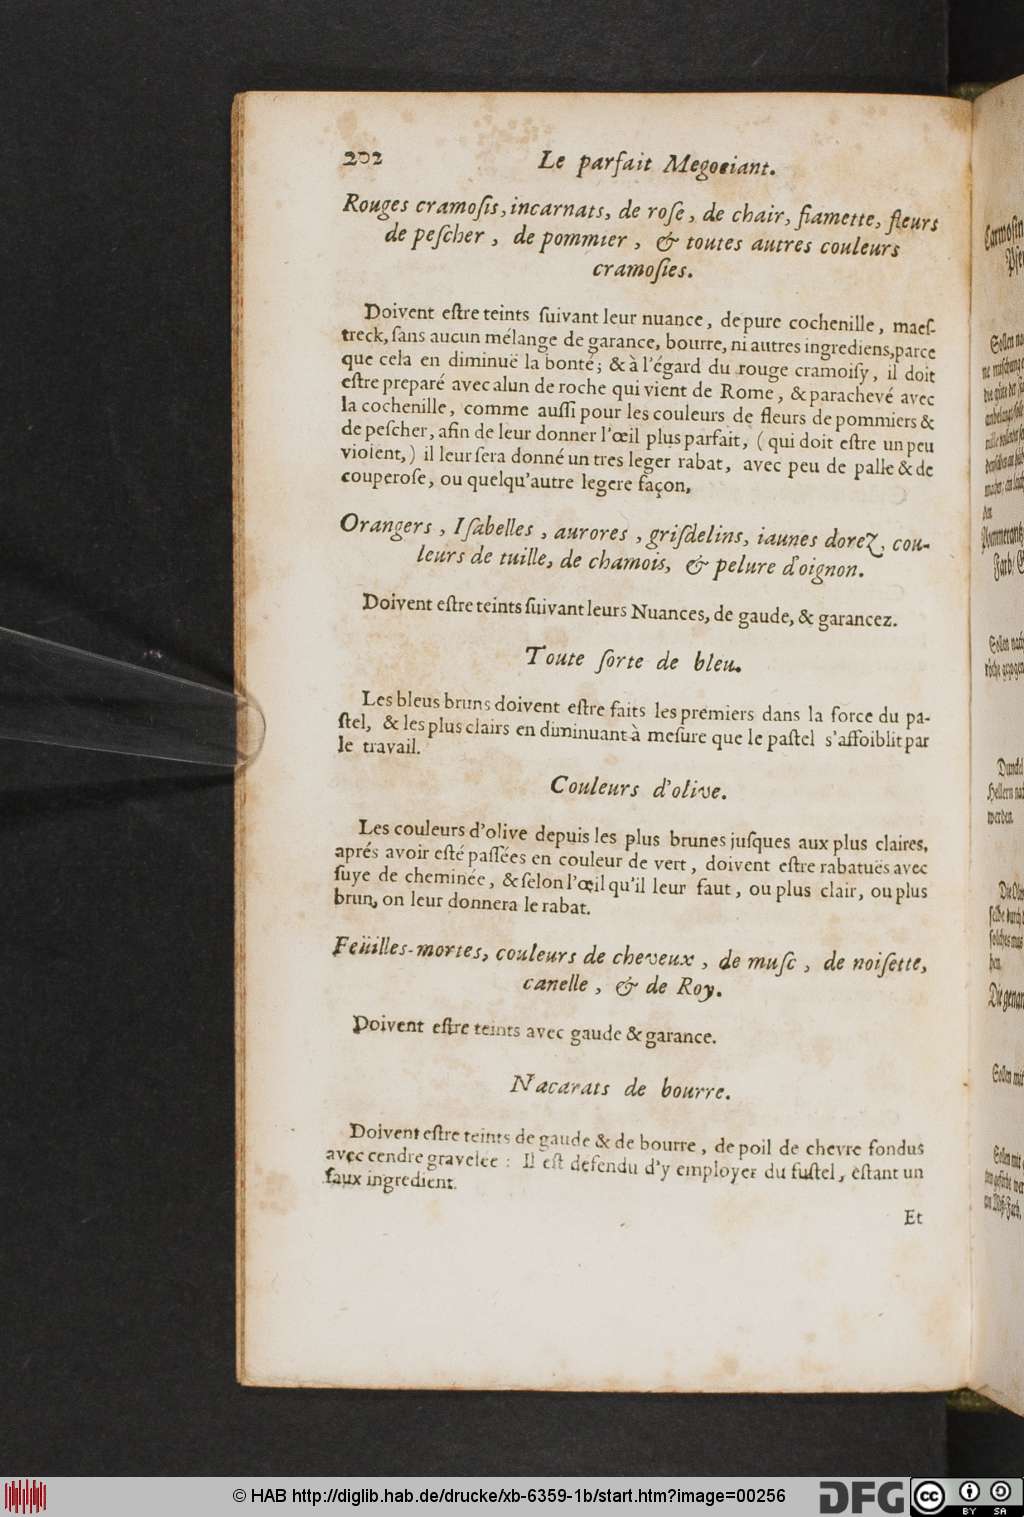 202 Le parfait Megociant.
Rouges cramoſis, incarnats, de roſe, de chair, fiamette, fleurs
de peſcher, de pommier, & toutes autres couleurs
cramoſies.
Doivent eſtre teints ſuivant leur nuance, de pure cochenille, maeſ-
treck, ſans aucun mélange de garance, bourre, ni autres ingrediens, parce
que cela en diminuë la bonté; & à l'égard du rouge cramoiſy, il doit
eſtre preparé avec alun de roche qui vient de Rome, & parachevé avec
la cochenille, comme auſſi pour les couleurs de fleurs de pommiers &
de peſcher, afin de leur donner l'œil plus parfait, (qui doit eſtre un peu
violent,) il leur ſera donné un tres leger rabat, avec peu de palle & de
couperoſe, ou quelqu'autre legere façon,
Orangers, Iſabelles, aurores, griſdelins, iaunes dorez, cou-
leurs de tuille, de chamois, & pelure d'oignon.
Doivent eſtre teints ſuivant leurs Nuances, de gaude, & garancez.
Toute ſorte de bleu.
Les bleus bruns doivent eſtre faits les premiers dans la force du pa-
ſtel, & les plus clairs en diminuant à meſure que le paſtel s'affoiblit par
le travail.
Couleurs d'olive.
Les couleurs d'olive depuis les plus brunes juſques aux plus claires,
aprés avoir eſté paſſées en couleur de vert, doivent eſtre rabatuës avec
ſuye de cheminée, & ſelon l'œil qu'il leur faut, ou plus clair, ou plus
brun, on leur donnera le rabat.
Feüilles-mortes, couleurs de cheveux, de muſc, de noiſette,
canelle, & de Roy.
Doivent eſtre teints avec gaude & garance.
Nacarats de bourre.
Doivent eſtre teints de gaude & de bourre, de poil de chevre fondus
avec cendre gravelée: Il eſt defendu d'y employer du fuſtel, eſtant un
faux ingredient.
Et
© HAB http://diglib.hab.de/drucke/xb-6359-1b/start.htm?image=00256
DFG
cc BY SA